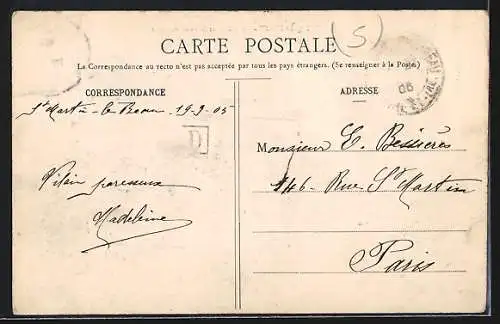 CARTE POSTALE
(5)
La Correspondance au recto n'est pas acceptée par tous les pays étrangers. (Se renseigner à la Poste)
CORRESPONDANCE
St Martin-le-Beau 19-9-05
D
Vilain paresseux
Madeleine
ADRESSE
Monsieur E. Bessières
146 - Rue St Martin
Paris